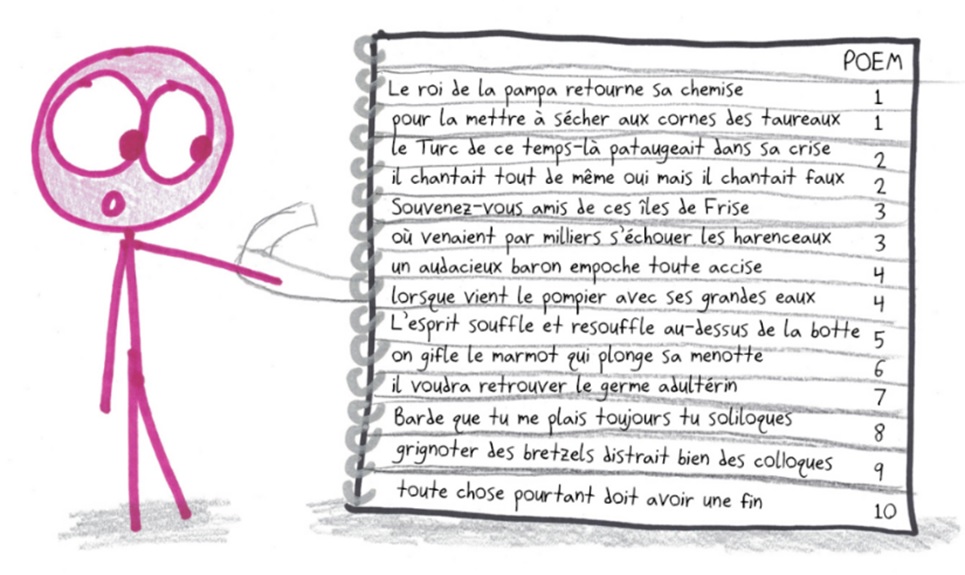 POEM
Le roi de la pampa retourne sa chemise 1
pour la mettre à sécher aux cornes des taureaux 1
le Turc de ce temps-là pataugeait dans sa crise 2
il chantait tout de même oui mais il chantait faux 2
Souvenez-vous amis de ces îles de Frise 3
où venaient par milliers s'échouer les harenceaux 3
un audacieux baron empoche toute accise 4
lorsque vient le pompier avec ses grandes eaux 4
L'esprit souffle et resouffle au-dessus de la botte 5
on gifle le marmot qui plonge sa menotte 6
il voudra retrouver le germe adultérin 7
Barde que tu me plais toujours tu soliloques 8
grignoter des bretzels distrait bien des colloques 9
toute chose pourtant doit avoir une fin 10